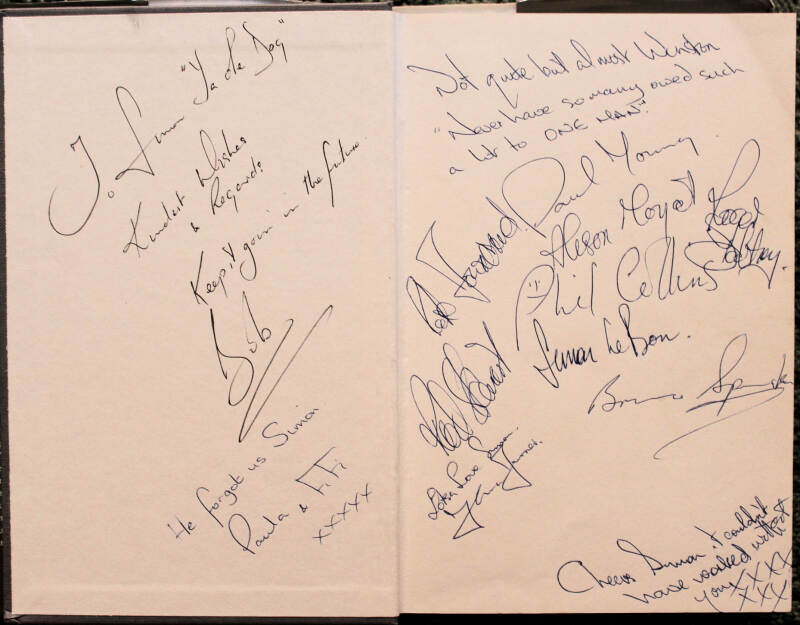 To Simon "Ya Ole Dog"
Kindest Wishes
& Regards
Keep it goin' in the future.
Bob
He forgot us Simon
Paula & Fifi
xxxxx
Not quite but almost Winston
"Never have so many owed such
a lot to ONE MAN".
Paul Young
Alison Moyet
Pete Townshend
Phil Collins
Simon Le Bon.
Rod Stewart
Bruce
Lots Love
Tina Turner.
Cheers Simon, it couldn't
have worked without
you xxxx
xxx